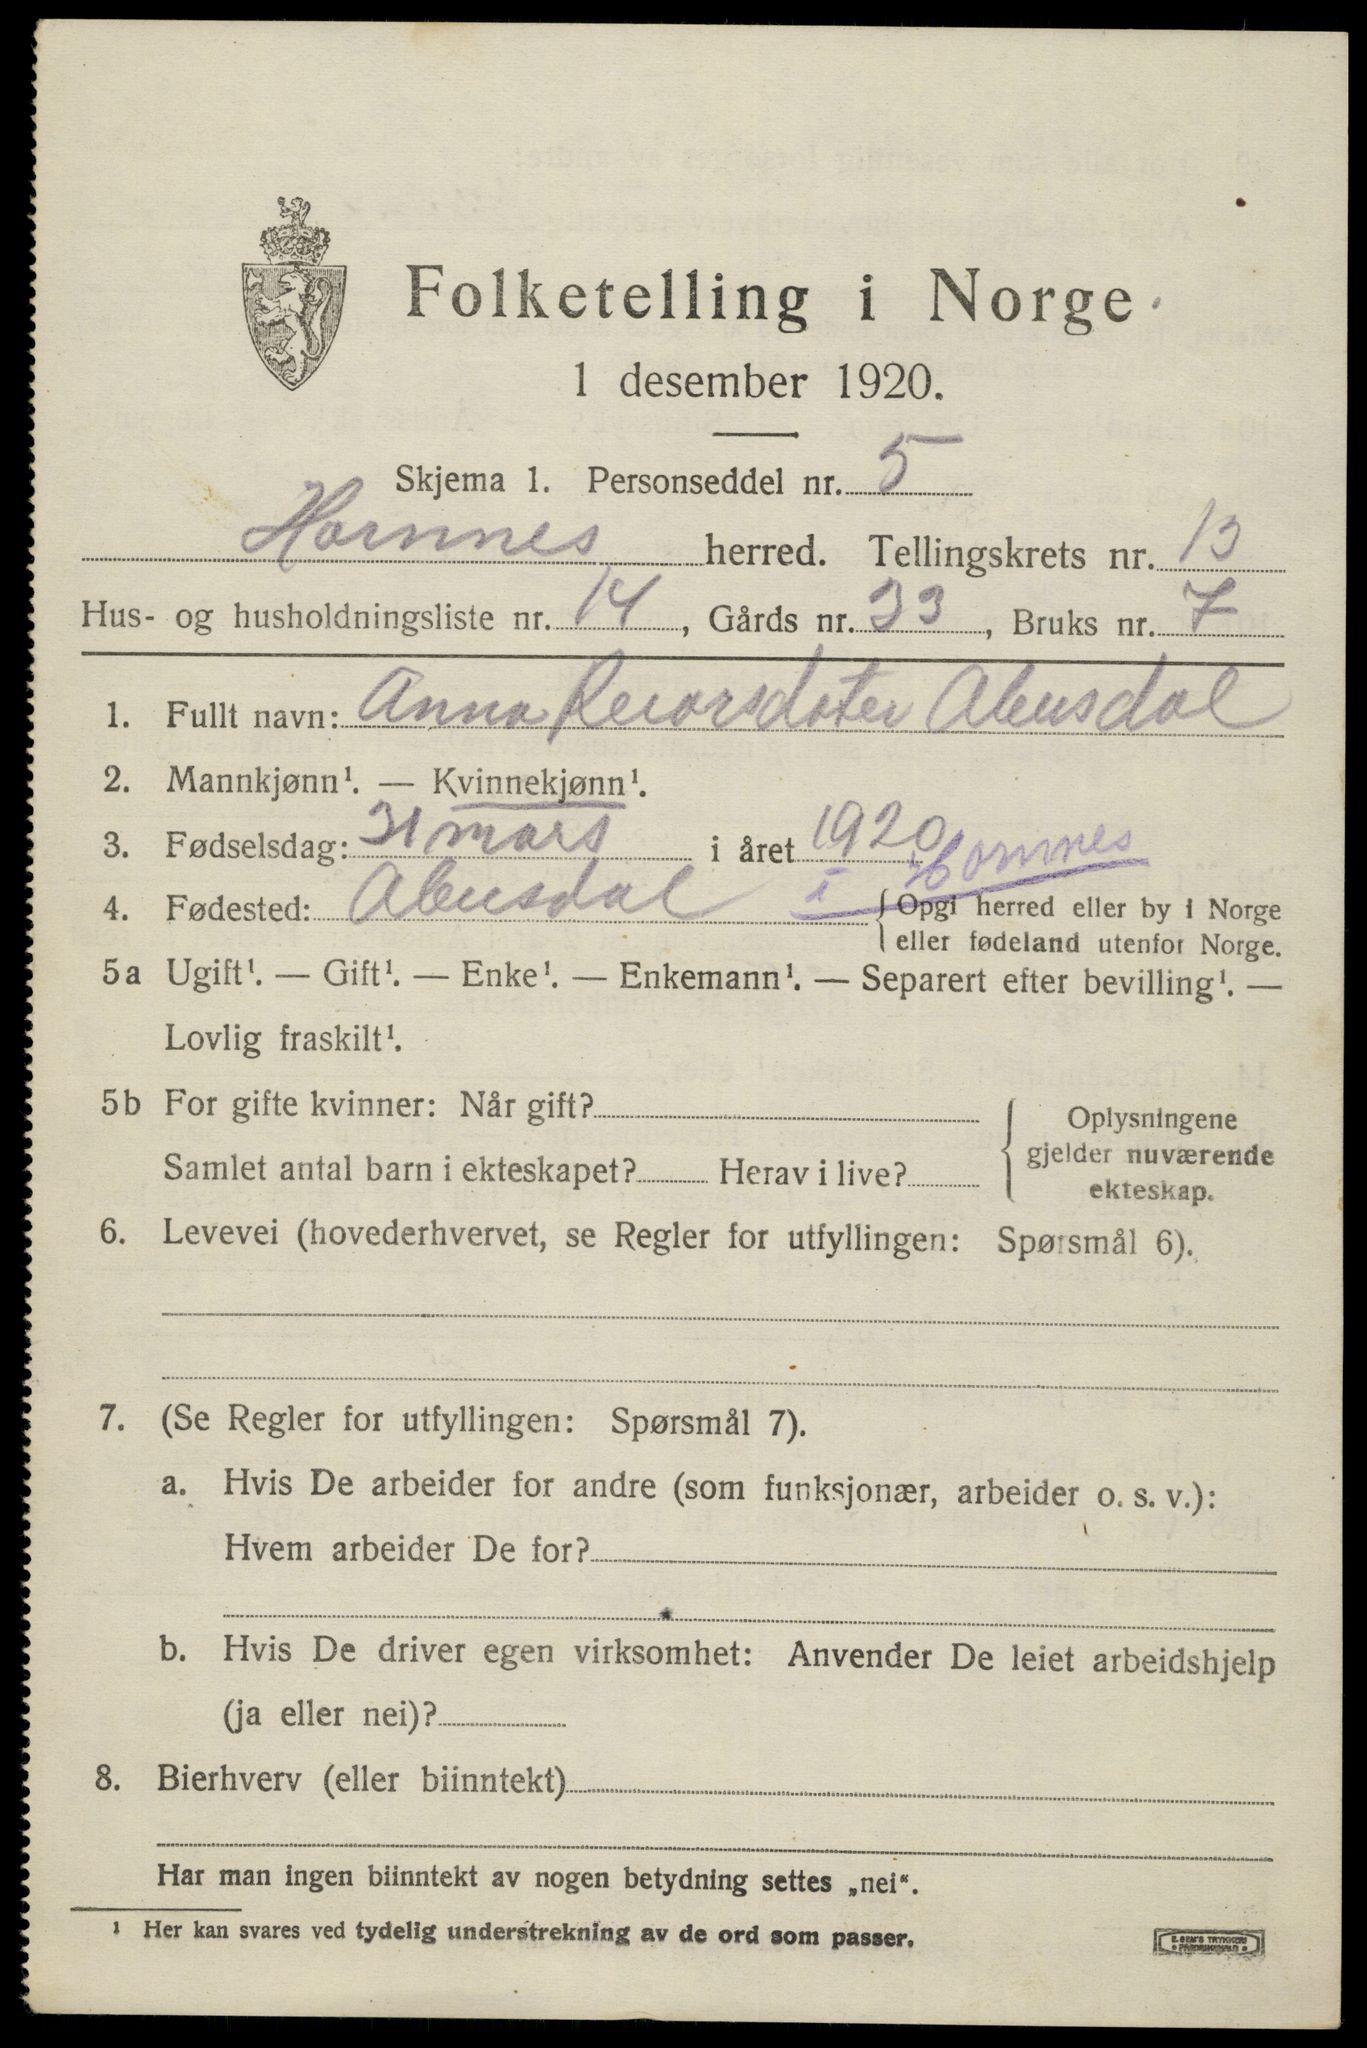 Folketelling i Norge
1 desember 1920.
Skjema 1. Personseddel nr. 5
Hornnes herred. Tellingskrets nr. 13
Hus- og husholdningsliste nr. 14, Gårds nr. 33, Bruks nr. 7
1. Fullt navn: Anna Reiarsdater Abusdal
2. Mannkjønn¹. — Kvinnekjønn¹.
3. Fødselsdag: 31 mars i året 1920
4. Fødested: Abusdal i Hornnes
{ Opgi herred eller by i Norge
eller fødeland utenfor Norge.
5a Ugift¹. — Gift¹. — Enke¹. — Enkemann¹. — Separert efter bevilling¹. —
Lovlig fraskilt¹.
5b For gifte kvinner: Når gift?
Samlet antal barn i ekteskapet? Herav i live?
{ Oplysningene
gjelder nuværende
ekteskap.
6. Levevei (hovederhvervet, se Regler for utfyllingen: Spørsmål 6).
7. (Se Regler for utfyllingen: Spørsmål 7).
a. Hvis De arbeider for andre (som funksjonær, arbeider o. s. v.):
Hvem arbeider De for?
b. Hvis De driver egen virksomhet: Anvender De leiet arbeidshjelp
(ja eller nei)?
8. Bierhverv (eller biinntekt)
Har man ingen biinntekt av nogen betydning settes „nei“.
¹ Her kan svares ved tydelig understrekning av de ord som passer.